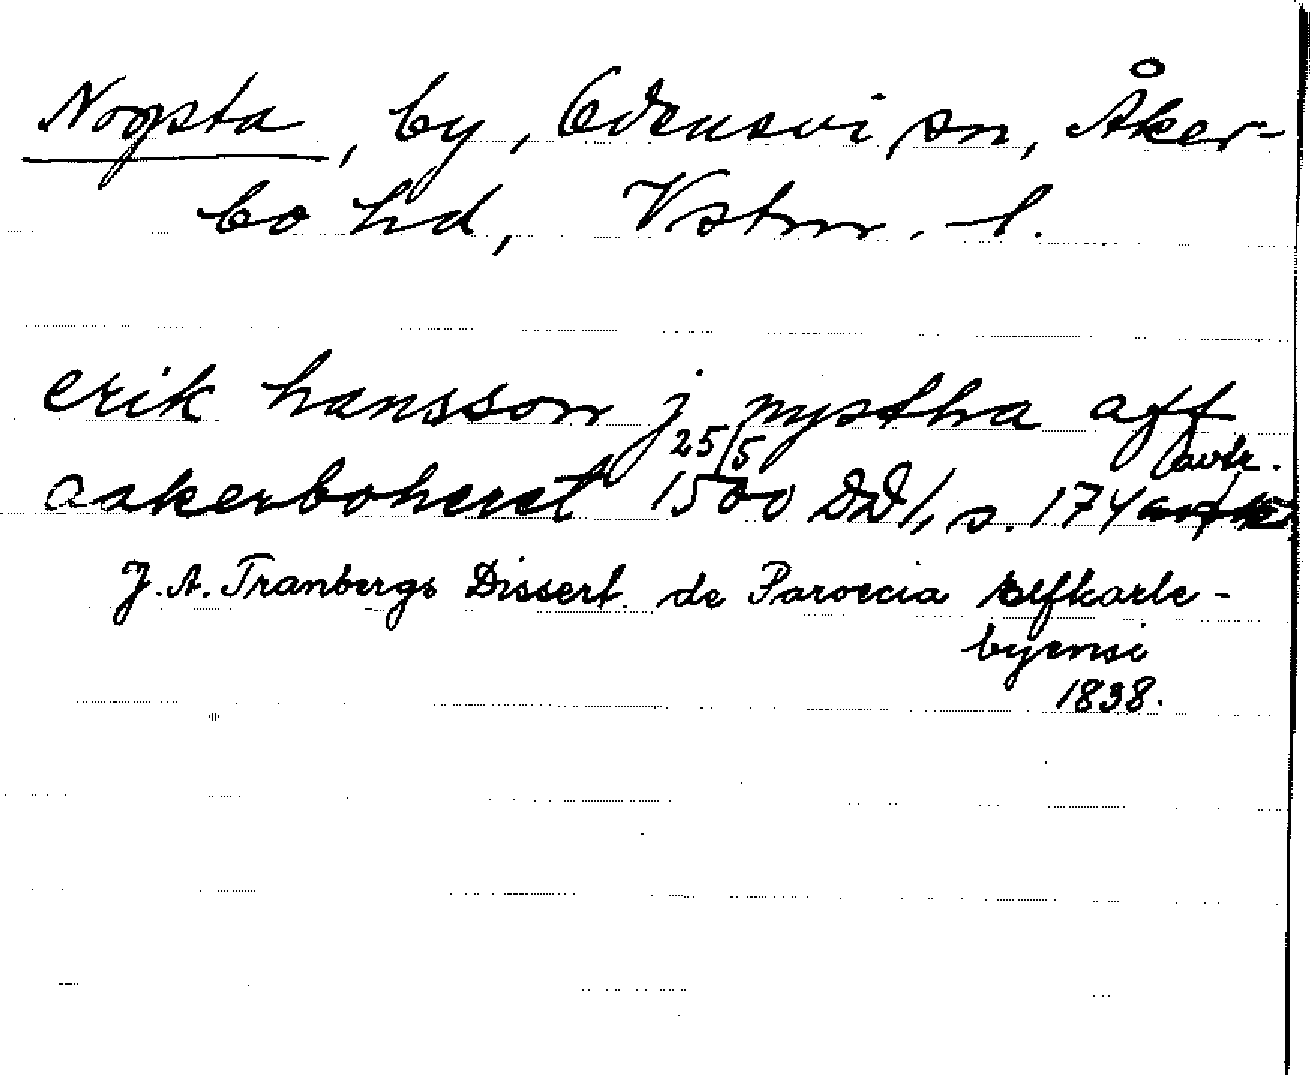 Nopsta, by, Odensvi sn, Åker-
bo hd, Vstm. l.
erik hansson j nystha aff
aakerboheret 25/5 1500 DD1, s. 174 avtr.
J. A. Tranbergs Dissert. de Paroecia Elfkarle-
byensi
1838.